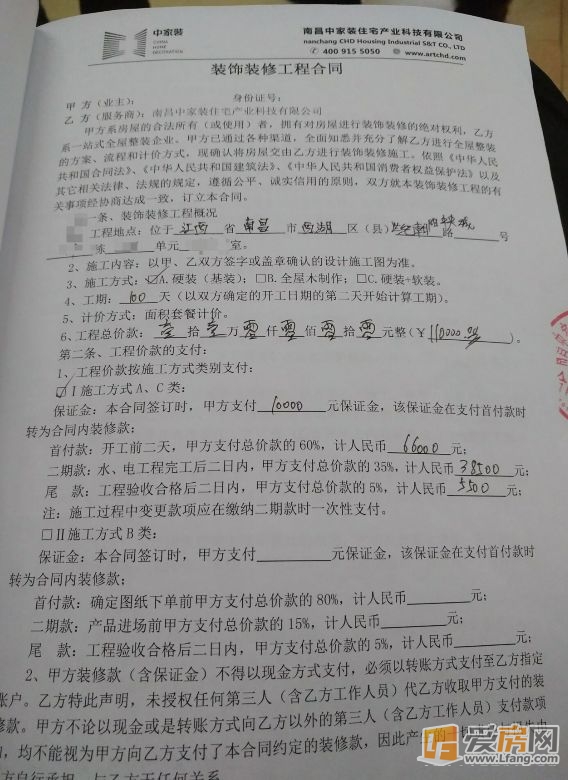 中家装
CHINA
HOME
DECORATION
南昌中家装住宅产业科技有限公司
nanchang CHD Housing Industrial S&T CO., LTD
400 915 5050 www.artchd.com
装饰装修工程合同
甲 方（业主）： 身份证号：
乙 方（服务商）：南昌中家装住宅产业科技有限公司
甲方系房屋的合法所有（或使用）者，拥有对房屋进行装饰装修的绝对权利，乙方
系一站式全屋整装企业。甲方已通过各种渠道，全面知悉并充分了解乙方进行全屋整装
的方案、流程和计价方式，现确认将房屋交由乙方进行装饰装修施工。依照《中华人民
共和国合同法》、《中华人民共和国建筑法》、《中华人民共和国消费者权益保护法》以及
其它相关法律、法规的规定，遵循公平、诚实信用的原则，双方就本装饰装修工程的有
关事项经协商达成一致，订立本合同。
一条、装饰装修工程概况
工程地点：位于江西省南昌市西湖区（县）路 号
栋 单元 室。
2、施工内容：以甲、乙双方签字或盖章确认的设计施工图为准。
3、施工方式：☑A.硬装（基装）；□B.全屋木制作；□C.硬装+软装。
4、工期：100天（以双方确定的开工日期的第二天开始计算工期）。
5、计价方式：面积套餐计价。
6、工程总价款：壹拾壹万零仟零佰零拾零元整（￥110000.00）。
第二条、工程价款的支付：
1、工程价款按施工方式类别支付：
☑Ⅰ施工方式A、C类：
保证金：本合同签订时，甲方支付10000元保证金，该保证金在支付首付款时
转为合同内装修款；
首付款：开工前二天，甲方支付总价款的60%，计人民币66000元；
二期款：水、电工程完工后二日内，甲方支付总价款的35%，计人民币38500元；
尾 款：工程验收合格后二日内，甲方支付总价款的5%，计人民币5500元；
注：施工过程中变更款项应在缴纳二期款时一次性支付。
□Ⅱ施工方式B类：
保证金：本合同签订时，甲方支付 元保证金，该保证金在支付首付款时
转为合同内装修款；
首付款：确定图纸下单前甲方支付总价款的80%，计人民币 元；
二期款：产品进场前甲方支付总价款的15%，计人民币 元；
尾 款：工程验收合格后二日内，甲方支付总价款的5%，计人民币 元；
2、甲方装修款（含保证金）不得以现金方式支付，必须以转账方式支付至乙方指定
账户。乙方特此声明，未授权任何第三人（含乙方工作人员）代乙方收取甲方支付的装
修款。甲方不论以现金或是转账方式向乙方以外的第三人（含乙方工作人员）支付款项
，均不能视为甲方向乙方支付了本合同约定的装修款，因此产生的一切
方自行承担，与乙方无任何关系
爱房网
www.Lfang.com